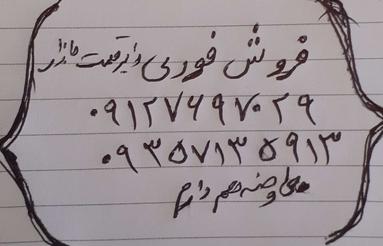 فروش فوری زیر قیمت بازار
۰۹۱۲۷۶۹۷۰۲۹
۰۹۳۵۷۱۳۵۹۱۳
معاوضه هم داریم